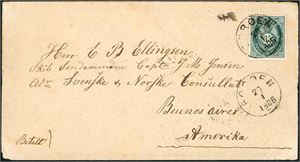 Herr E B Ellingsen
Skib Sondemanden Captn J M Jensen
Adr Svenske & Norske Consullat
Buenos aires
Amerika
Betalt
27
1
1886